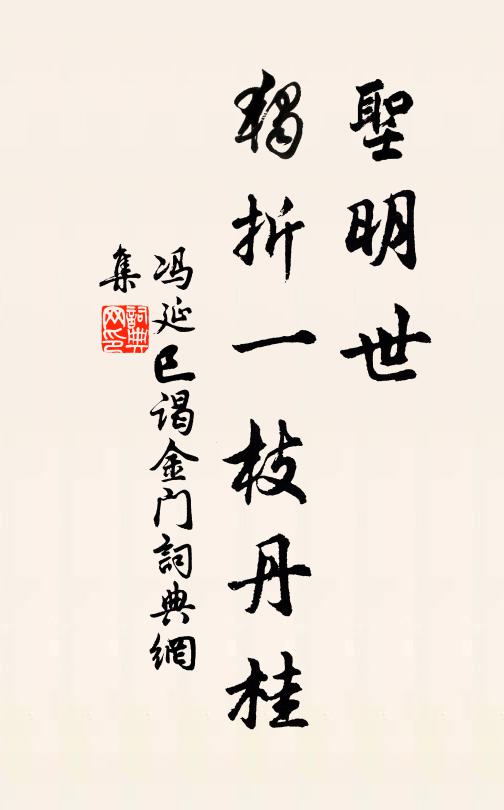 聖明世
獨折一枝丹桂
冯延巳谒金门詞典網
集
詞典
网印